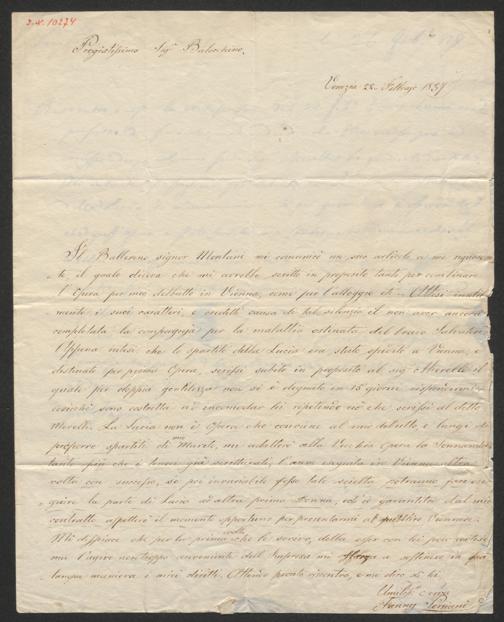 I.N. 10274
Pregiatissimo Sig.r Balochino.
Venezia 22. Febbrajo 1837
Il Ballerino signor Montani mi comunicò un suo articolo a me riguardan-
te il quale diceva che mi avrebbe scritto in proposito tanto per combinare
l'Opera per mio debutto in Vienna, come per l'alloggio etc. Attesi inutil-
mente i suoi caratteri, e credetti causa di tal silenzio il non aver ancora
completata la compagnia per la malattia ostinata del bravo Salvatori.
Appena intesi che lo spartito della Lucia era stato spedito a Vienna, e
destinato per prima Opera, scrissi subito in proposito al sig. Merelli il
quale per doppia gentilezza non si è degnato in 15 giorni rispondermi
cosichè sono costretta ad incomodar lei ripetendo ciò che scrissi al detto
Merelli. La Lucia non è Opera che conviene al mio debutto e lungi di
proporre spartiti di mio Marito, mi adattai alla Vecchia Opera la Sonnambula
tanto più che i tenori già scritturati, l'anno eseguita in Vienna altra
volta con successo, se poi invariabile fosse tale scielta potranno fare ese-
guire la parte di Lucia ad altra prima Donna, ed io garantita dal mio
contratto aspetterò il momento opportuno per presentarmi al pubblico Viennese.
Mi dispiace che per la prima volta che le scrivo, debba esser con lei poco
ma l'agire non troppo conveniente dell'Impresa mi sforza a sostenere in
tampa maniera i miei diritti. Attendo pronto riscontro, e me dico di lei
Umiliss. Serva
Fanny Persiani